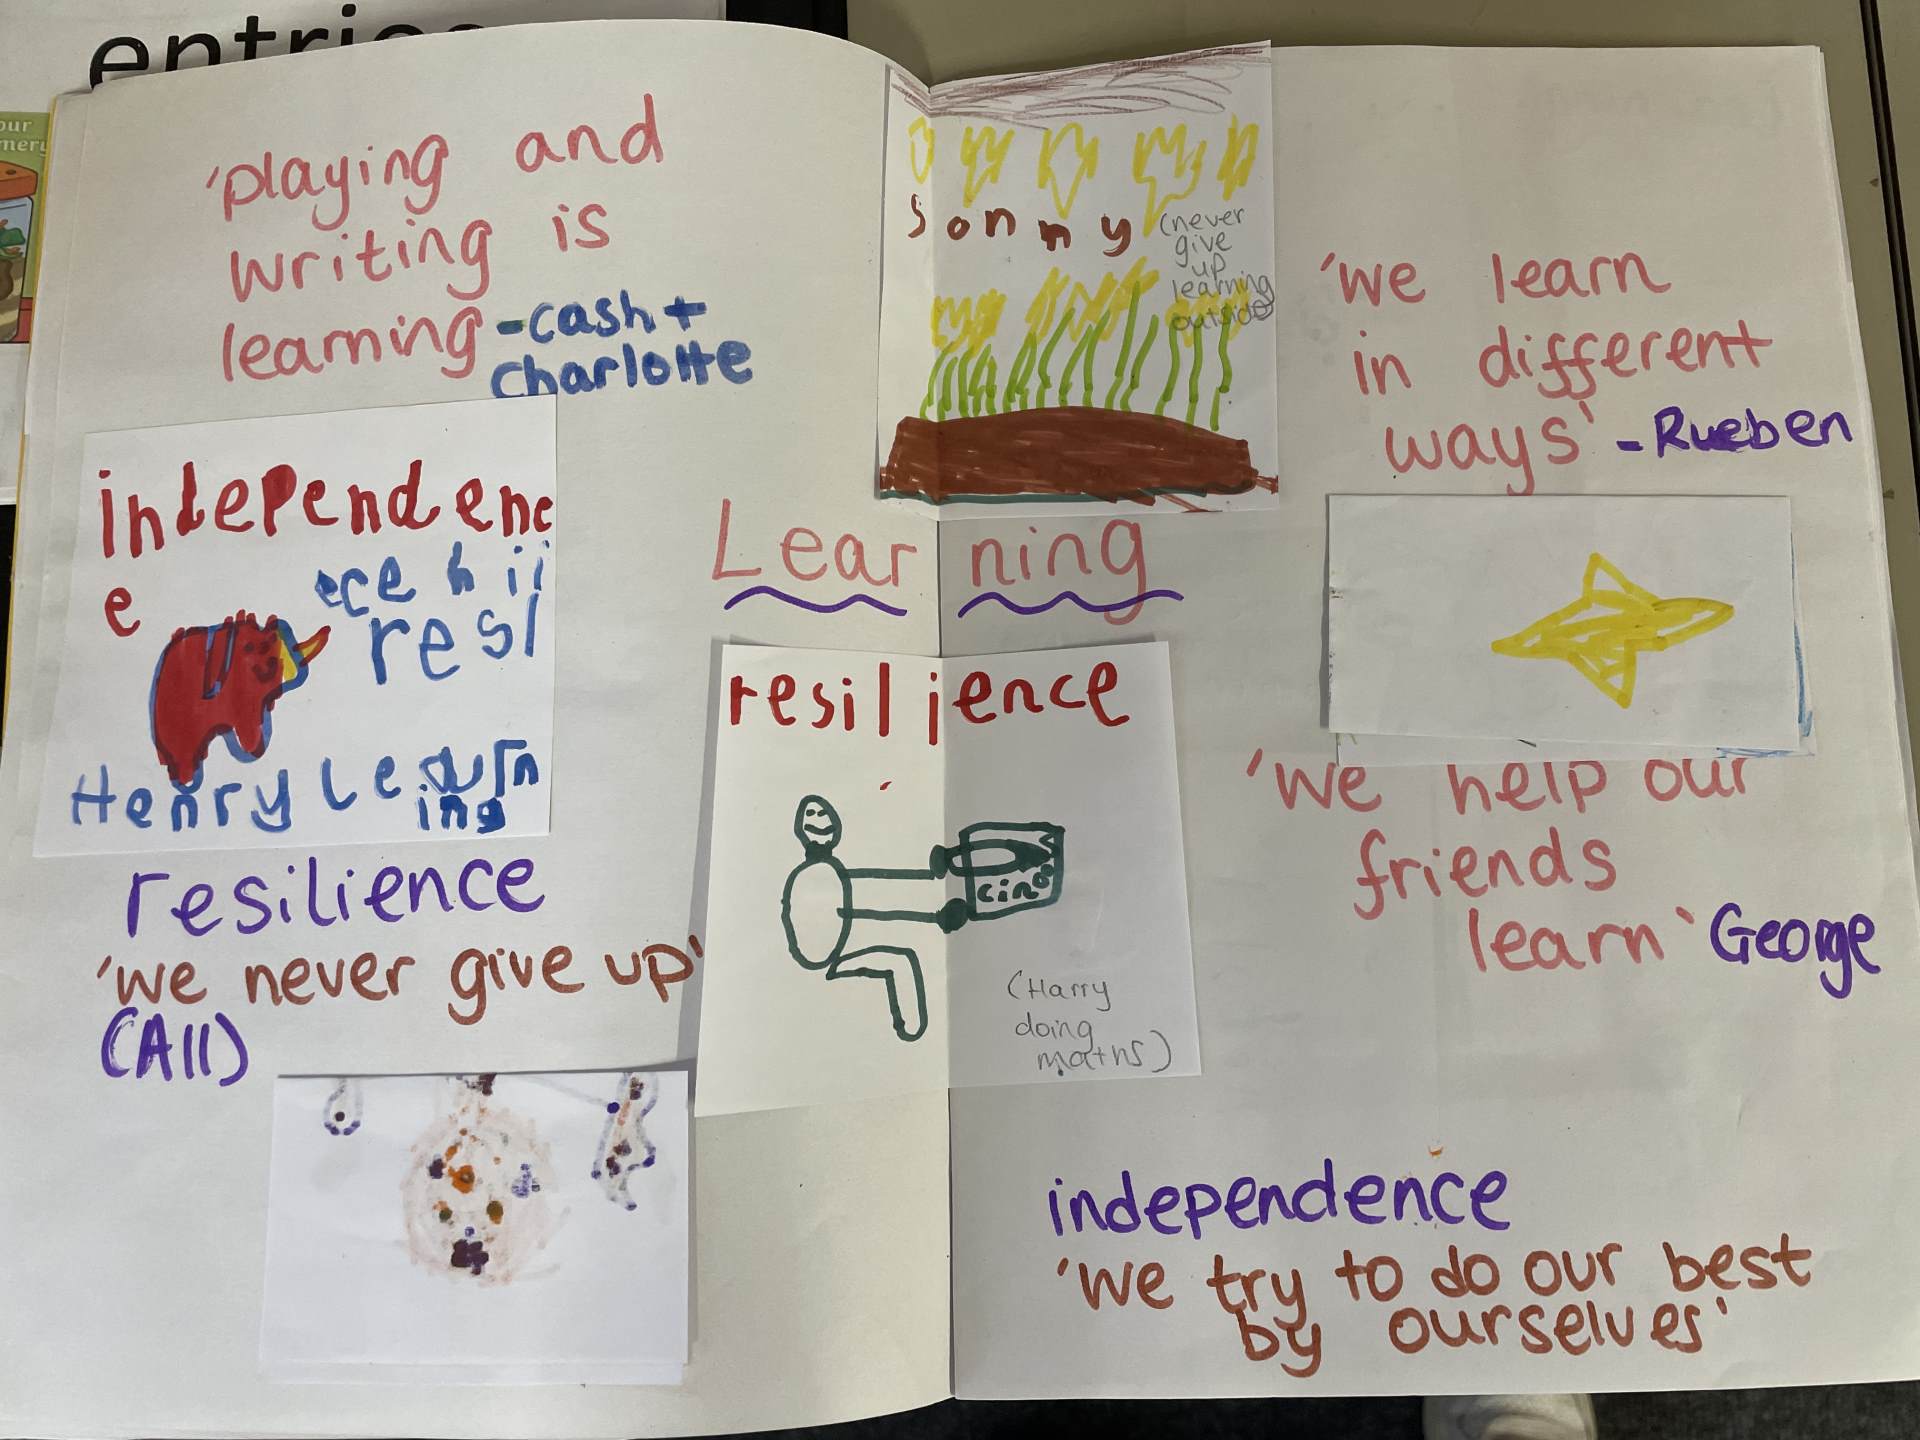 entries
our
'playing and
writing is
learning - cash +
charlotte
sonny
(never
give
up
learning
outside)
'we learn
in different
ways' - Rueben
independenc
e
resl
Henry Learn
ing
Learning
resilience
(Harry
doing
maths)
'we help our
friends
learn' George
resilience
'we never give up'
(All)
independence
'we try to do our best
by ourselves'